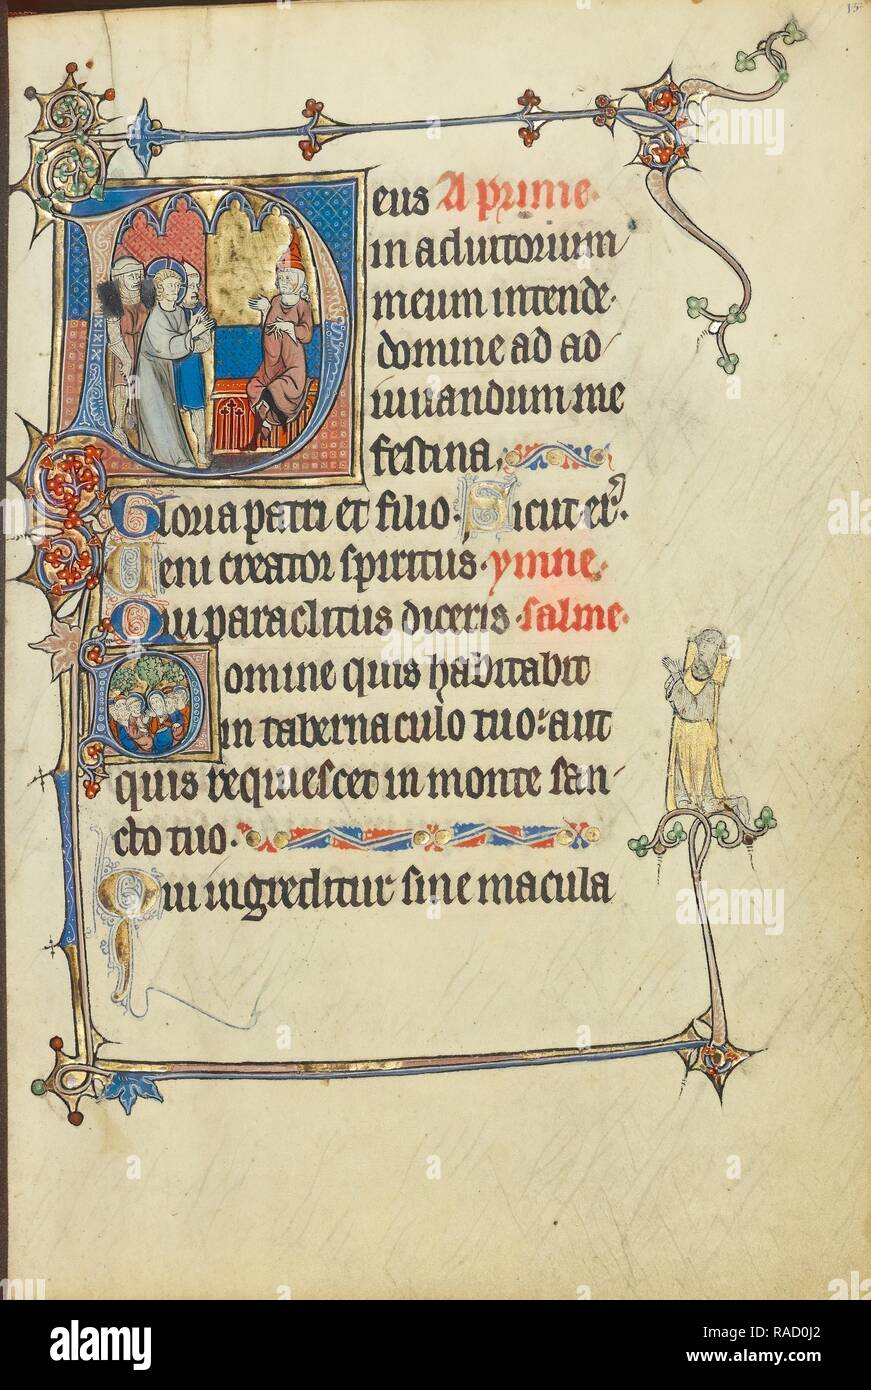 15
eus A prime.
in adiutorium
meum intende.
domine ad ad
iuuandum me
festina.
Gloria patri et filio. Sicut er̉.
Ueni creator spiritus. ymne.
Qui paraclitus diceris. salme.
Domine quis habitabit
in tabernaculo tuo: aut
quis requiescet in monte san
cto tuo.
Qui ingreditur sine macula
alamy
Image ID: RAD0J2
www.alamy.com